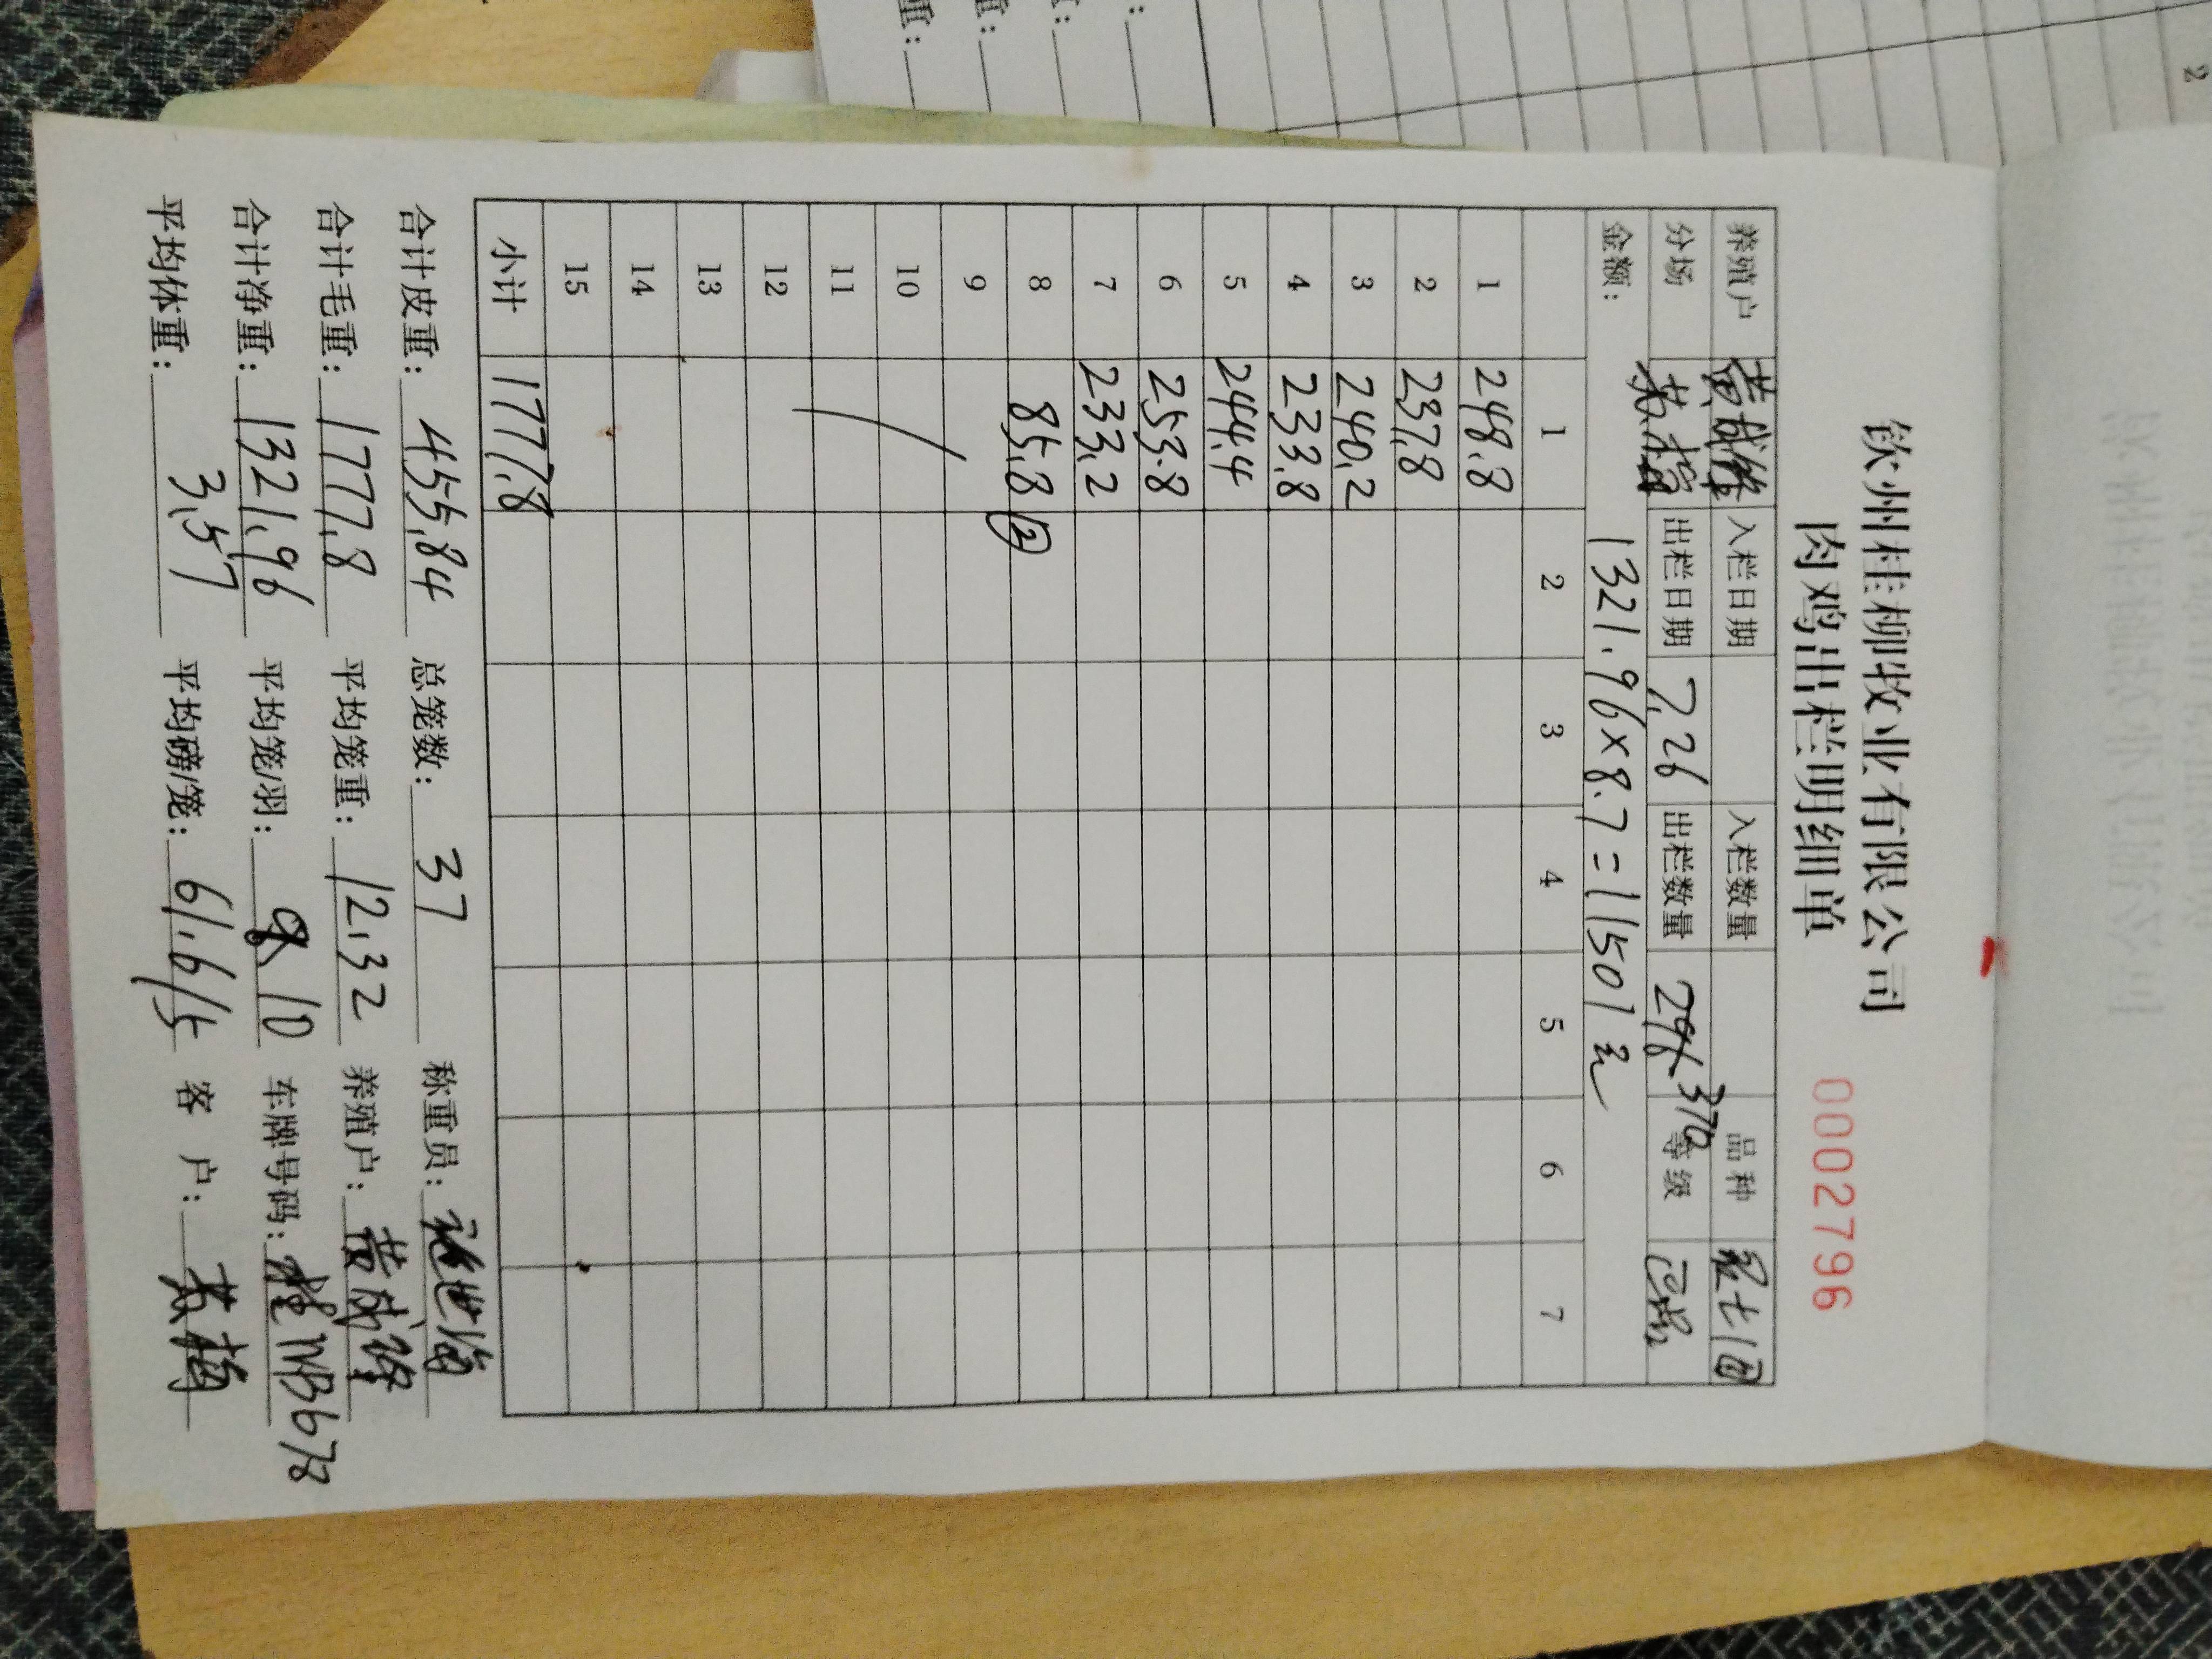 钦州桂柳牧业有限公司
肉鸡出栏明细单 0002796
养殖户 黄武锋 入栏日期 入栏数量 品种
分场 出栏日期 7.26 出栏数量 370 等级
金额： 1321.96×8.7=11501元
1 2 3 4 5 6 7
1 248.8
2 237.8
3 240.2
4 233.8
5 244.4
6 253.8
7 233.2
8 85.8 ②
9
10
11
12
13
14
15
小计 1777.8
合计皮重： 455.84 总笼数： 37 称重员：
合计毛重： 1777.8 平均笼重： 12.32 养殖户： 黄武锋
合计净重： 1321.96 平均笼/羽： 10 车牌号码： 桂NB678
平均体重： 3.57 平均磅/笼： 61.6/5 客 户：
重：
重：
重：
2